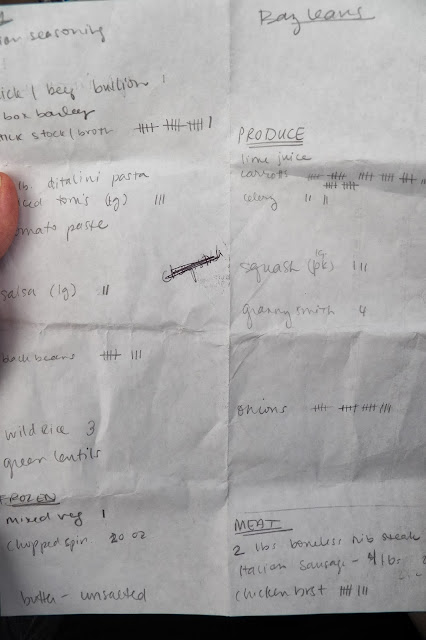 seasoning
bullion 1
box barley
stock / broth |||| |||| |||| |
lb. ditalini pasta
tom's (lg) |||
paste
salsa (lg) ||
beans |||| |||
wild rice 3
green lentils
FROZEN
mixed veg 1
chopped spin 20 oz
butter - unsalted
PRODUCE
lime juice
carrots
celery || ||
squash (pk) lg |||
granny smith 4
onions |||| |||| |||| |||
MEAT
2 lbs boneless rib steak
Italian Sausage - 4 lbs
chicken brst |||| |||